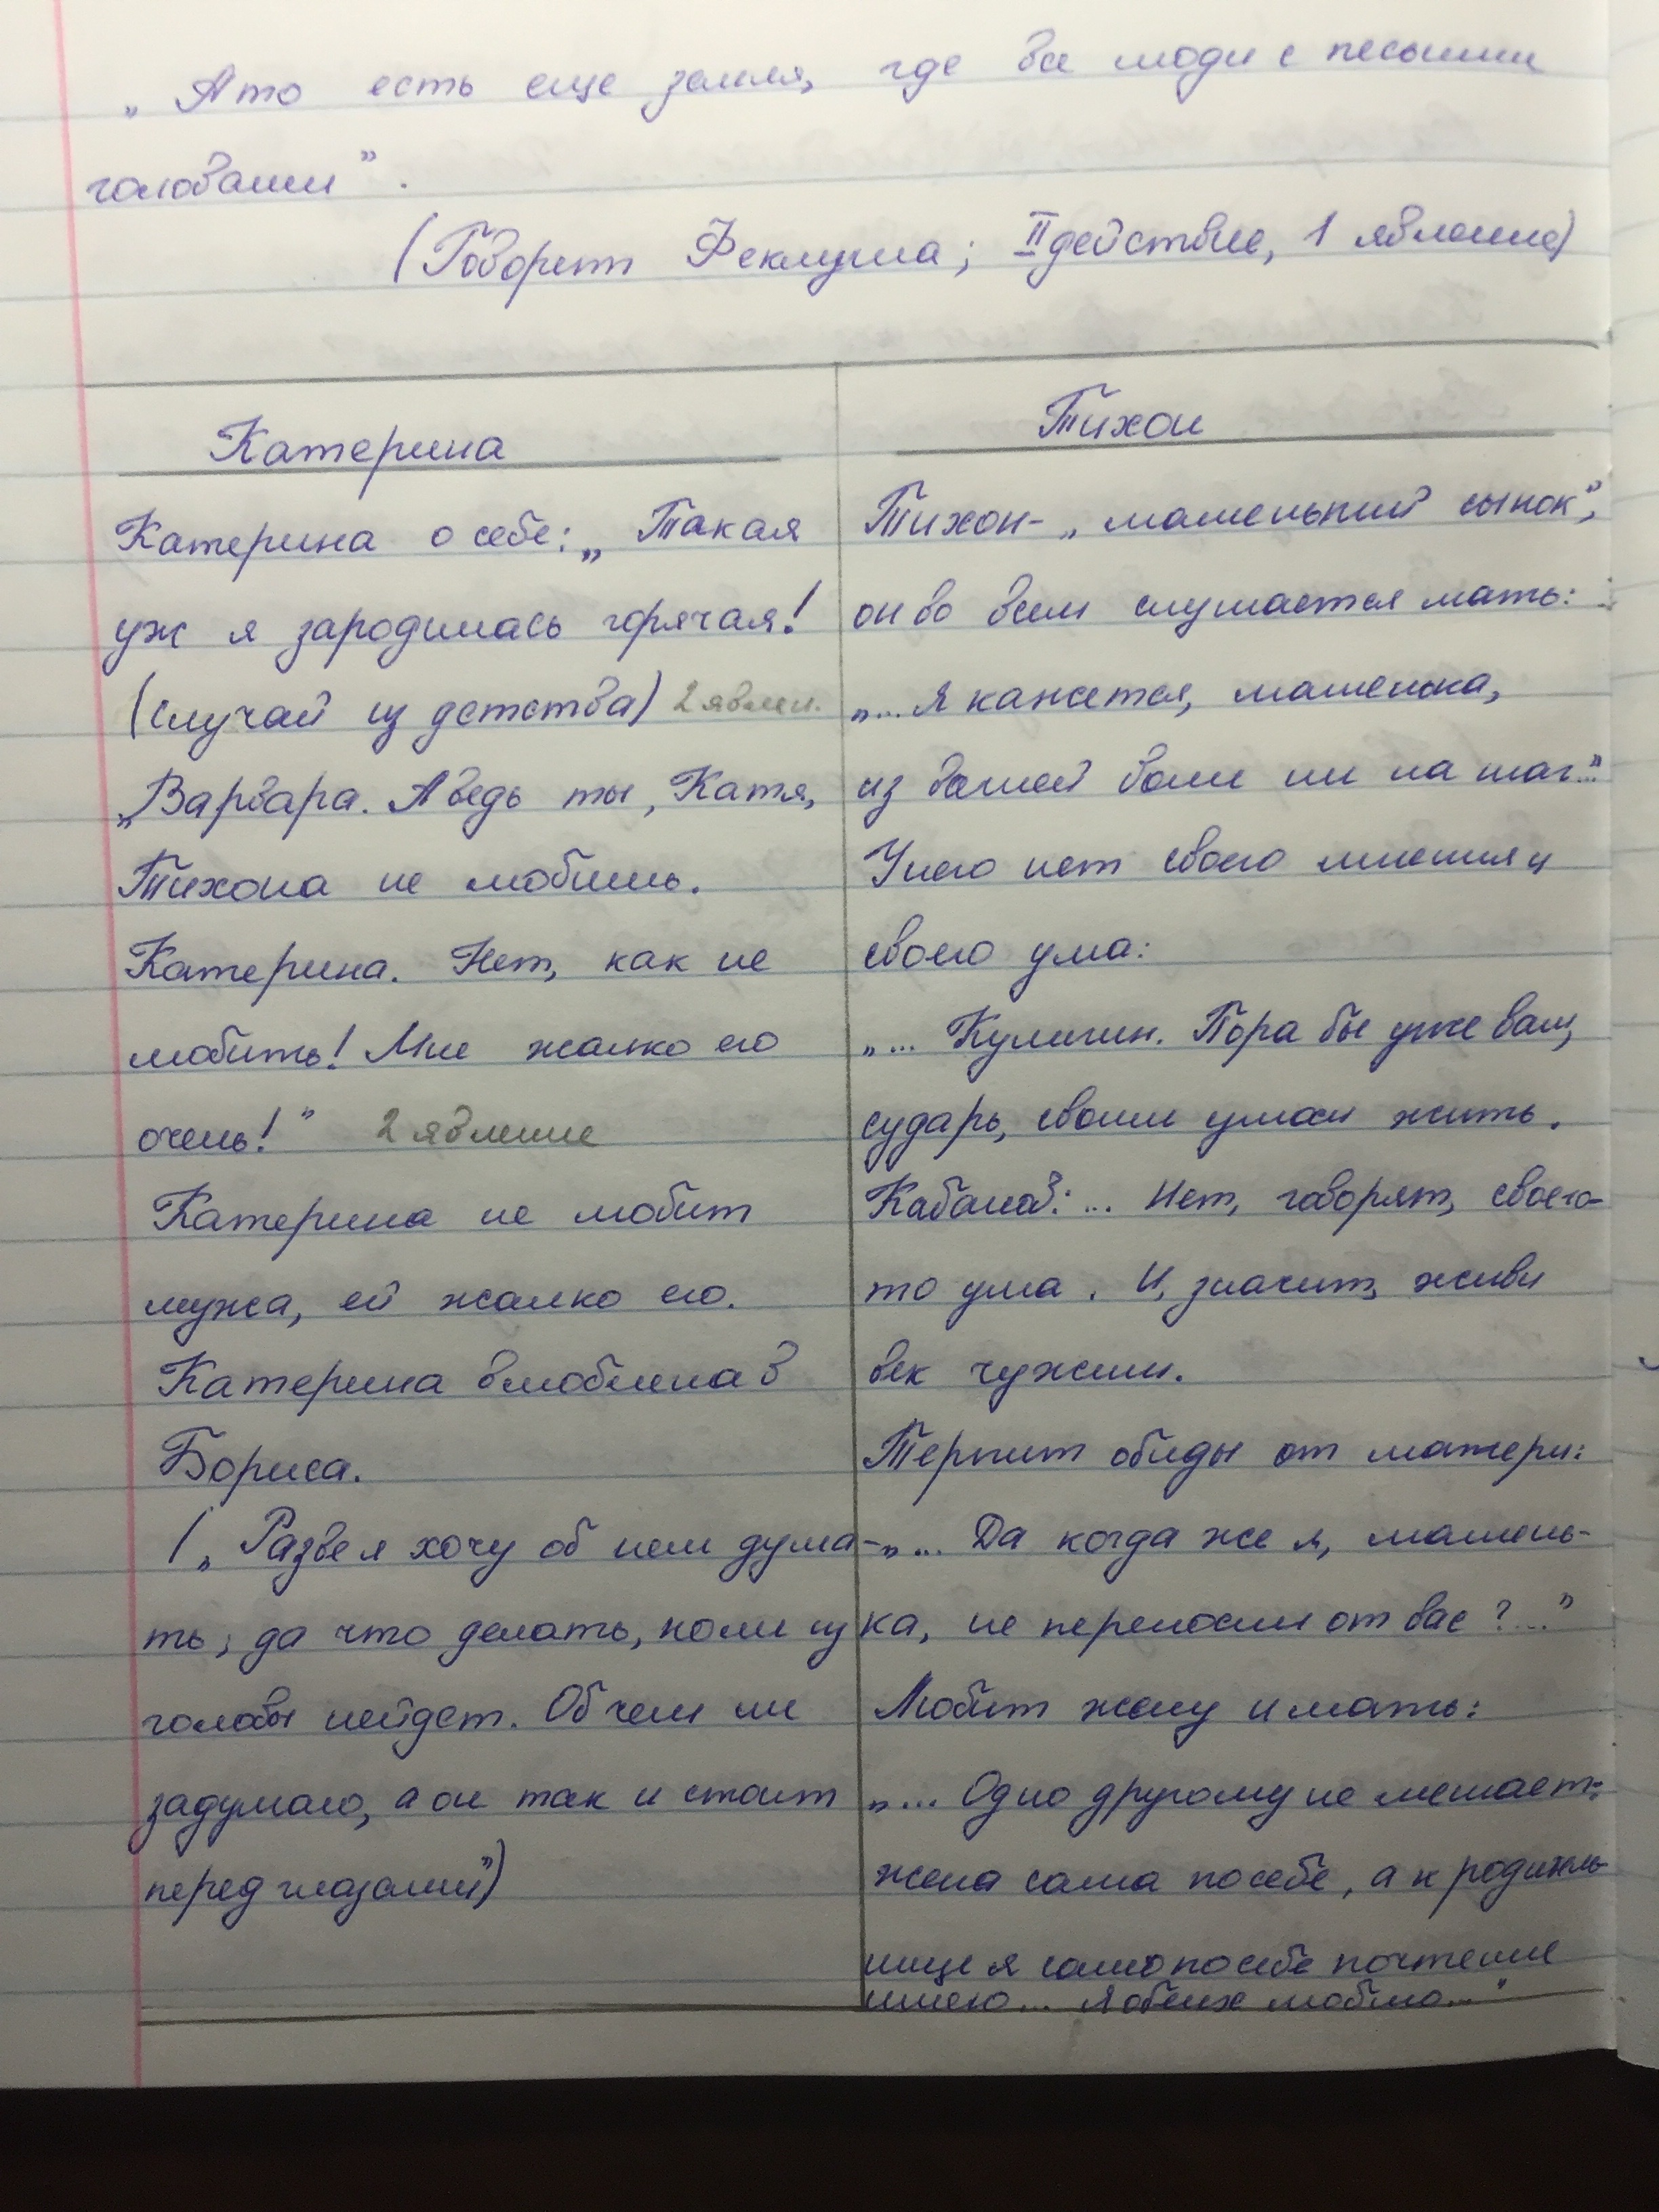 „А то есть еще земля, где все люди с песьими
головами".
(Говорит Феклуша; II действие, 1 явление)
Катерина
Катерина о себе: „Такая
уж я зародилась горячая!
(случай из детства) 2 явлен.
„Варвара. А ведь ты, Катя,
Тихона не любишь.
Катерина. Нет, как не
любить! Мне жалко его
очень!" 2 явление
Катерина не любит
мужа, ей жалко его.
Катерина влюблена в
Бориса.
(„Разве я хочу об нем дума-
ть; да что делать, коли из
головы нейдет. Об чем ни
задумаю, а он так и стоит
перед глазами")
Тихон
Тихон - „маменький сынок",
он во всем слушается мать:
„... Я кажется, маменька,
из вашей воли ни на шаг..."
У него нет своего мнения и
своего ума:
„... Кулигин. Пора бы уже вам,
сударь, своим умом жить.
Кабанов: ... Нет, говорят, своего-
то ума. И, значит, живи
век чужим.
Терпит обиды от матери:
„... Да когда же я, мамень-
ка, не переносил от вас?..."
Любит жену и мать:
„... Одно другому не мешает:
жена сама по себе, а к родитель-
нице я само по себе почтение
имею... Я обеих люблю..."